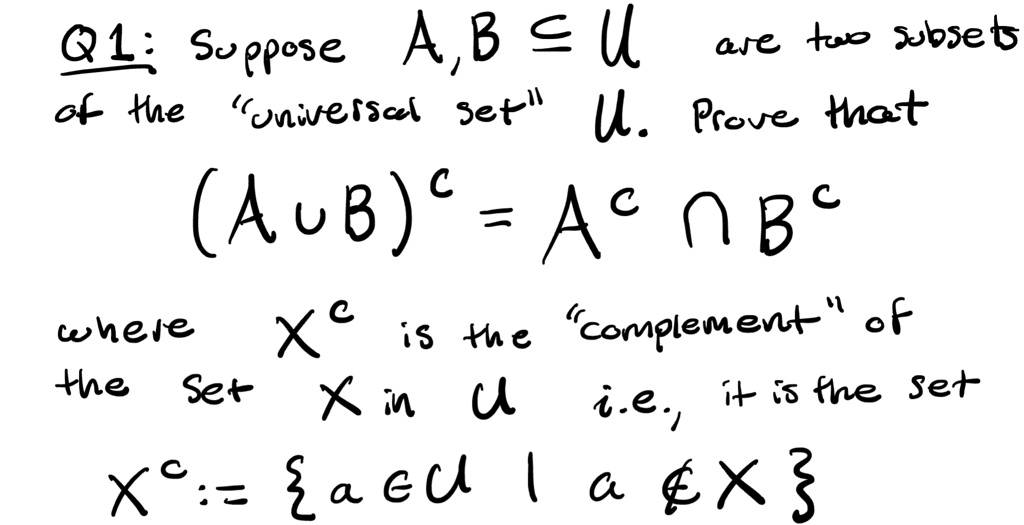 Q1: Suppose A, B ⊆ U are two subsets
of the "universal set" U. Prove that
(A ∪ B)ᶜ = Aᶜ ∩ Bᶜ
where Xᶜ is the "complement" of
the set X in U i.e., it is the set
Xᶜ := {a ∈ U | a ∉ X}